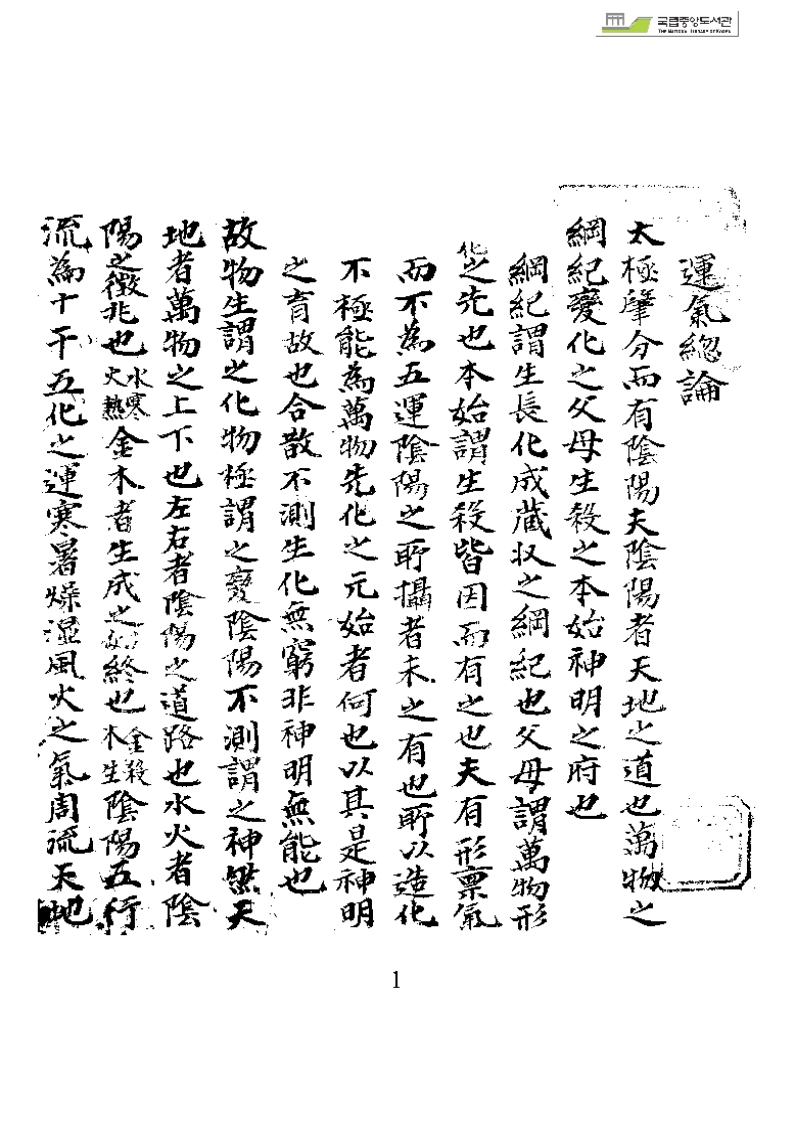 국립중앙도서관
THE NATIONAL LIBRARY OF KOREA
運氣總論
太極肇分而有陰陽夫陰陽者天地之道也萬物之
綱紀變化之父母生殺之本始神明之府也
綱紀謂生長化成藏収之綱紀也父母謂萬物形
化之先也本始謂生殺皆因而有之也夫有形稟氣
而不為五運陰陽之所攝者未之有也所以造化
不極能為萬物先化之元始者何也以其是神明
之育故也合散不測生化無窮非神明無能也
故物生謂之化物極謂之變陰陽不測謂之神然天
地者萬物之上下也左右者陰陽之道路也水火者陰
陽之徵兆也水寒火熱金木者生成之始終也金殺木生陰陽五行
流為十干五化之運寒暑燥湿風火之氣周流天地
1